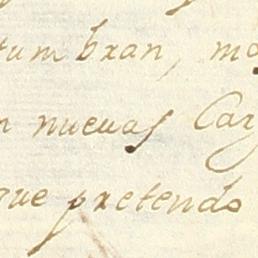 tumbran, mo
n nuevas Car
que pretendo